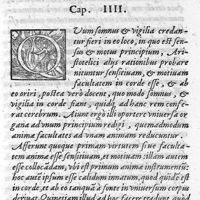 Cap. IIII.
QVum somnus & vigilia credan-
tur fieri in eo loco, in quo est sen-
sus & motus principium, Ari-
stotelici alijs rationibus probare
nituntur sensitiuam, & motiuam
facultatem in corde esse, & ab
eo oriri, postea verò docent, quo modo somnus, &
vigilia in corde fiant, quidq́; ad hanc rem confe-
rat cerebrum. Aiunt ergo illi oportere vniuersa or-
gana ad vnum principium redigi, quemadmodum
anima facultates ad vnam animam reducuntur.
Asserunt quoque primam virtutem siue facultatem
animæ esse sensitiuam, et motiuam illam autem
esse collocādam, vbi est primum animæ instrumentū:
hoc autē ipsum esse calidum innatum, quod quidē est
in corde, et ab eo tanquā à fonte in vniuersum corpus
deriuat. Quinetiam illud ad hoc facere tradunt, quod